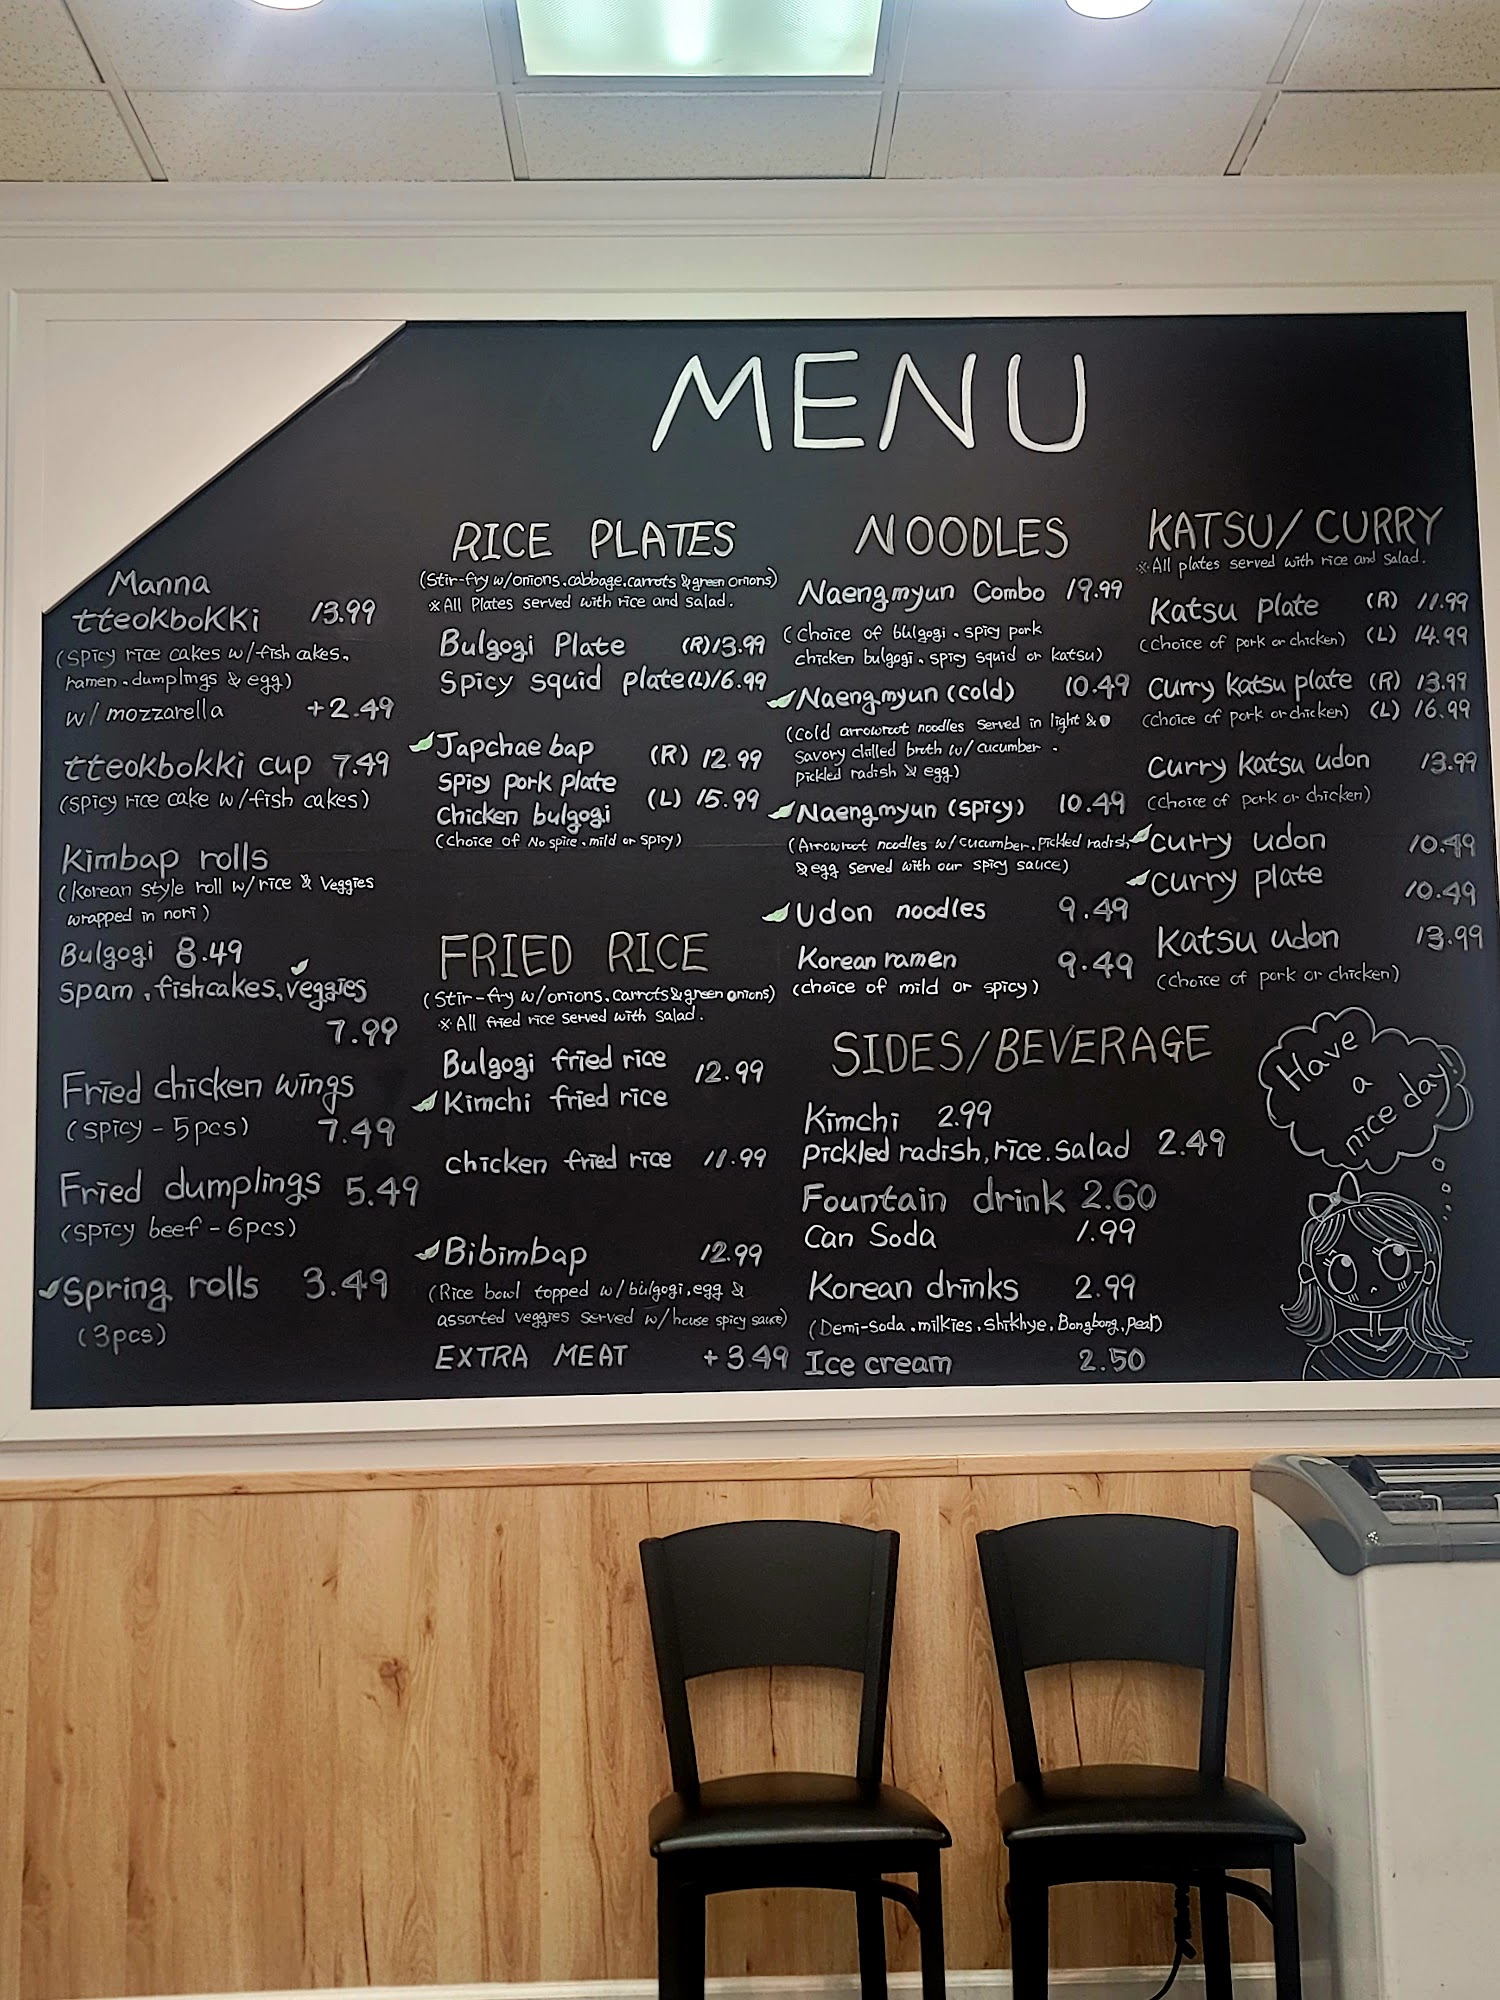 MENU
Manna
tteokbokki 13.99
(spicy rice cakes w/fish cakes,
ramen, dumplings & egg)
w/ mozzarella +2.49
tteokbokki cup 7.49
(spicy rice cake w/fish cakes)
Kimbap rolls
(Korean style roll w/rice & Veggies
wrapped in nori)
Bulgogi 8.49
Spam, fishcakes, veggies
7.99
Fried chicken wings
(spicy - 5pcs) 7.49
Fried dumplings 5.49
(spicy beef - 6pcs)
Spring rolls 3.49
(3pcs)
RICE PLATES
(Stir-fry w/onions, cabbage, carrots & green onions)
※All Plates served with rice and salad.
Bulgogi Plate (R) 13.99
Spicy squid plate (L) 16.99
Japchae bap (R) 12.99
Spicy pork plate
Chicken bulgogi (L) 15.99
(Choice of No spice, mild or spicy)
FRIED RICE
(Stir-fry w/onions, carrots & green onions)
※All fried rice served with salad.
Bulgogi fried rice 12.99
Kimchi fried rice
chicken fried rice 11.99
Bibimbap 12.99
(Rice bowl topped w/bulgogi, egg &
assorted veggies served w/house spicy sauce)
EXTRA MEAT +3.49
NOODLES
Naengmyun Combo 19.99
(Choice of bulgogi, spicy pork
chicken bulgogi, spicy squid or katsu)
Naengmyun (cold) 10.49
(Cold arrowroot noodles served in light &
savory chilled broth w/cucumber,
pickled radish & egg)
Naengmyun (spicy) 10.49
(Arrowroot noodles w/cucumber, pickled radish
& egg served with our spicy sauce)
Udon noodles 9.49
Korean ramen 9.49
(choice of mild or spicy)
KATSU/CURRY
※All plates served with rice and salad.
Katsu plate (R) 11.99
(Choice of pork or chicken) (L) 14.99
Curry katsu plate (R) 13.99
(choice of pork or chicken) (L) 16.99
Curry katsu udon 13.99
(choice of pork or chicken)
curry udon 10.49
curry plate 10.49
Katsu udon 13.99
(choice of pork or chicken)
SIDES/BEVERAGE
Kimchi 2.99
Pickled radish, rice, salad 2.49
Fountain drink 2.60
Can Soda 1.99
Korean drinks 2.99
(Demi-soda, milkies, shikhye, Bongbong, pear)
Ice cream 2.50
Have
a
nice day!